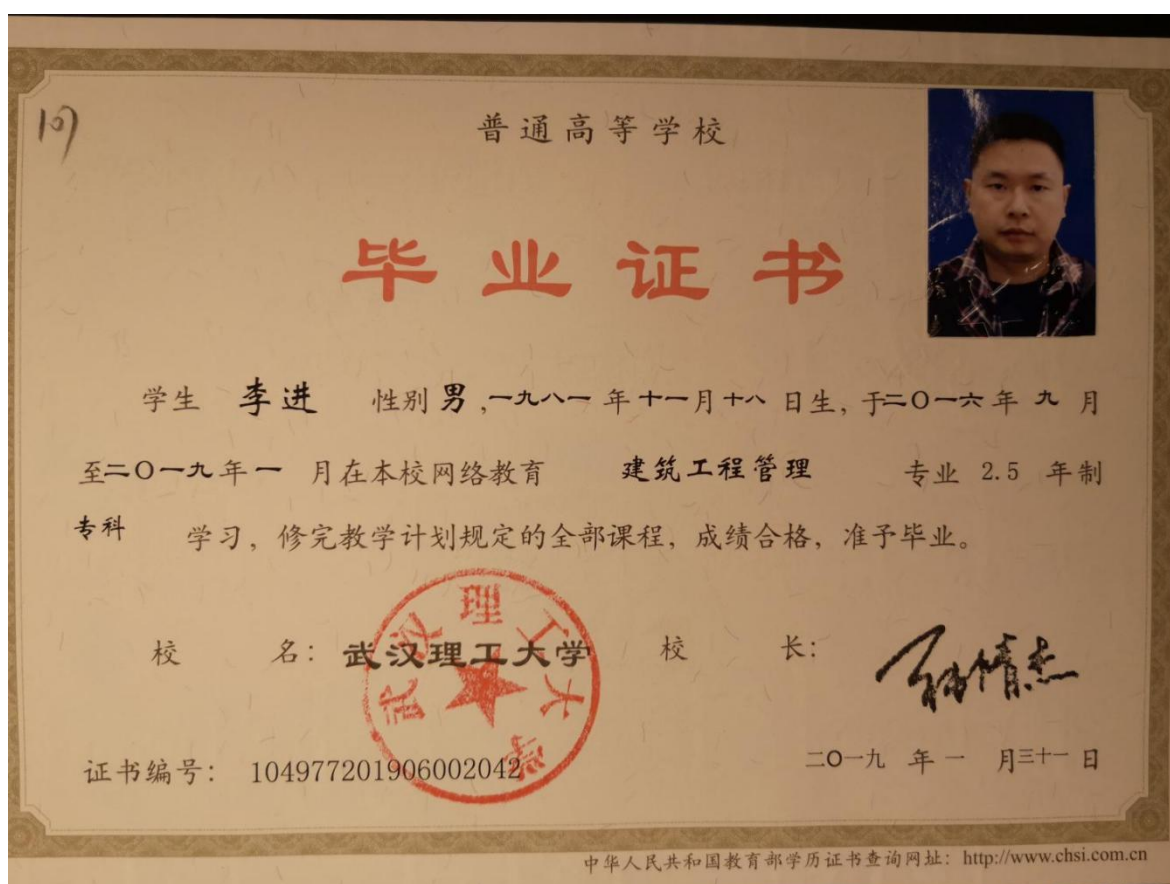 10)
普通高等学校
毕业证书
学生 李进 性别 男 ,一九八一 年 十一 月 十八 日生, 于二〇一六 年 九 月
至二〇一九 年 一 月在本校网络教育 建筑工程管理 专业 2.5 年制
专科 学习, 修完教学计划规定的全部课程, 成绩合格, 准予毕业。
校 名: 武汉理工大学 校 长:
武汉理工大学
证书编号: 104977201906002042 二〇一九 年 一 月三十一 日
中华人民共和国教育部学历证书查询网址: http://www.chsi.com.cn